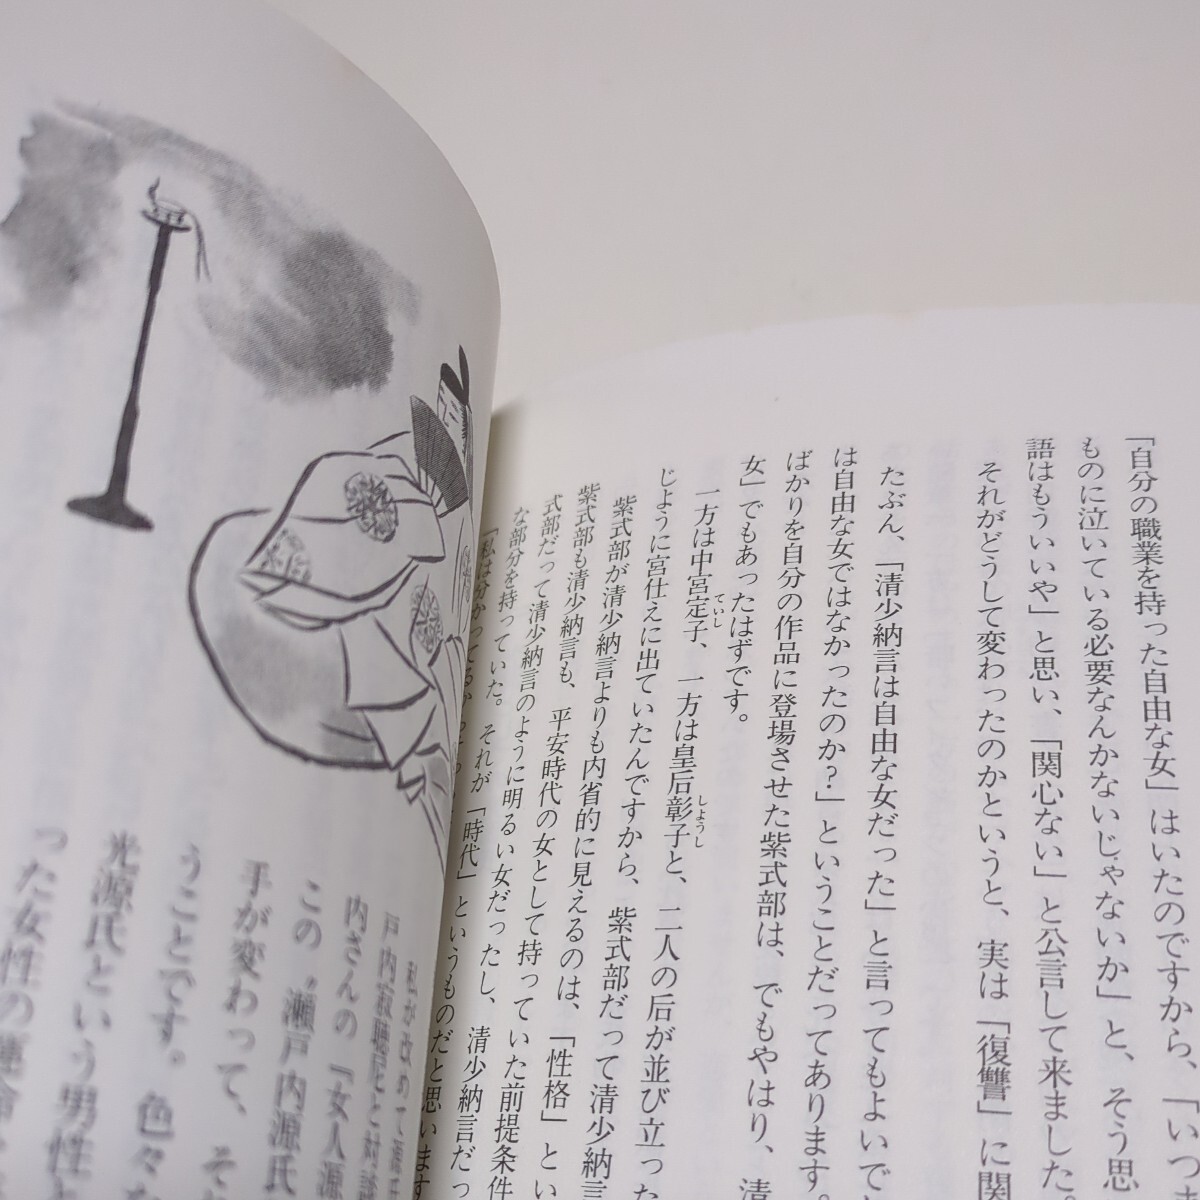 「自分の職業を持った自由な女」はいたのですから、「いつ
ものに泣いている必要なんかないじゃないか」と、そう思
語はもういいや」と思い、「関心ない」と公言して来ました
それがどうして変わったのかというと、実は「復讐」に関
たぶん、「清少納言は自由な女だった」と言ってもよいで
は自由な女ではなかったのか？」ということだってあります。
ばかりを自分の作品に登場させた紫式部は、でもやはり、清
女」でもあったはずです。
一方は中宮定子、一方は皇后彰子と、二人の后が並び立った
ていし
しようし
じように宮仕えに出ていたんですから、紫式部だって清少納
紫式部が清少納言よりも内省的に見えるのは、「性格」とい
紫式部も清少納言も、平安時代の女として持っていた前提条件
式部だって清少納言のように明るい女だったし、清少納言だっ
な部分を持っていた。それが「時代」というものだと思います
「私は分かってるか
私が改めて源氏
戸内寂聴尼と対談
内さんの『女人源
この〝瀬戸内源氏
手が変わって、そ
うことです。色々な
光源氏という男性と
った女性の運命